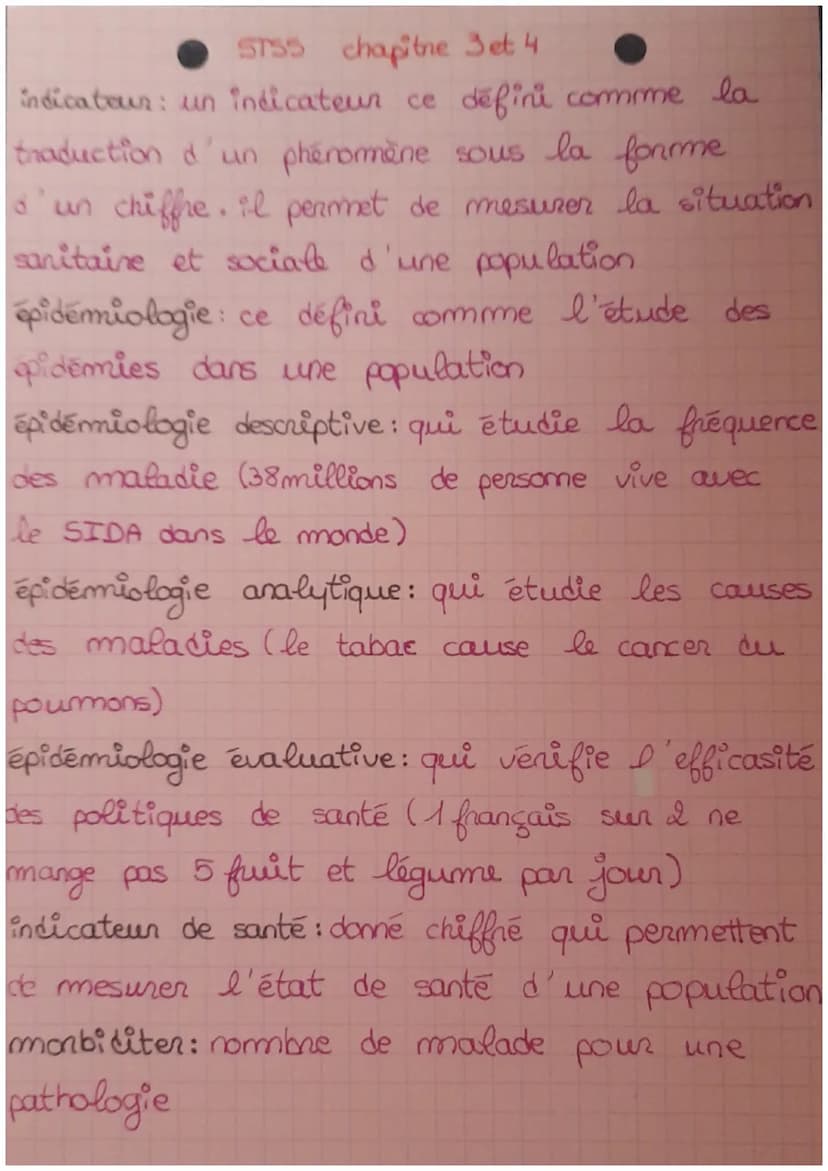 STSS chapitre 3 et 4
indicateur : un indicateur ce défini comme la
traduction d'un phénomène sous la forme
d'un chiffre. il permet de mesurer la situation
sanitaire et sociale d'une population
épidémiologie : ce défini comme l'étude des
épidémies dans une population
épidémiologie descriptive : qui étudie la fréquence
des maladie (38 millions de personne vive avec
le SIDA dans le monde)
épidémiologie analytique : qui étudie les causes
des maladies (le tabac cause le cancer du
poumons)
épidémiologie évaluative : qui vérifie l'efficasité
des politiques de santé (1 français sur 2 ne
mange pas 5 fuit et légume par jour)
indicateur de santé : donné chiffré qui permettent
de mesurer l'état de santé d'une population
morbiditer : nombre de malade pour une
pathologie